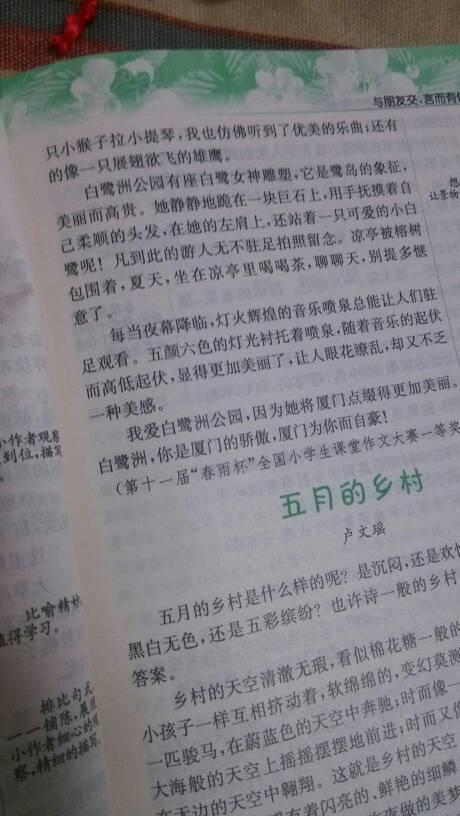 与朋友交，言而有
只小猴子拉小提琴，我也仿佛听到了优美的乐曲；还有
的像一只展翅欲飞的雄鹰。
白鹭洲公园有座白鹭女神雕塑，它是鹭岛的象征，
美丽而高贵。她静静地跪在一块巨石上，用手抚摸着自
己柔顺的头发，在她的左肩上，还站着一只可爱的小白
鹭呢！凡到此的游人无不驻足拍照留念。凉亭被榕树
包围着，夏天，坐在凉亭里喝喝茶，聊聊天，别提多惬
意了。
每当夜幕降临，灯火辉煌的音乐喷泉总能让人们驻
足观看。五颜六色的灯光衬托着喷泉，随着音乐的起伏
而高低起伏，显得更加美丽了，让人眼花缭乱，却又不乏
一种美感。
我爱白鹭洲公园，因为她将厦门点缀得更加美丽。
白鹭洲，你是厦门的骄傲，厦门为你而自豪！
（第十一届“春雨杯”全国小学生课堂作文大赛一等奖
五月的乡村
卢文瑶
五月的乡村是什么样的呢？是沉闷，还是欢
黑白无色，还是五彩缤纷？也许诗一般的乡村
答案。
乡村的天空清澈无瑕，看似棉花糖一般的
小孩子一样互相挤动着，软绵绵的，变幻莫测
一匹骏马，在蔚蓝色的天空中奔驰；时而像一
大海般的天空上摇摇摆摆地前进；时而又像
在无边的天空中翱翔。这就是乡村的天空
有着闪亮的、鲜艳的细鳞
夜做的美梦
想
让景物
小作者观察
到位，描写
比喻精妙
值得学习。
排比句式
——铺陈，展
小作者细心的观
察，精细的描写